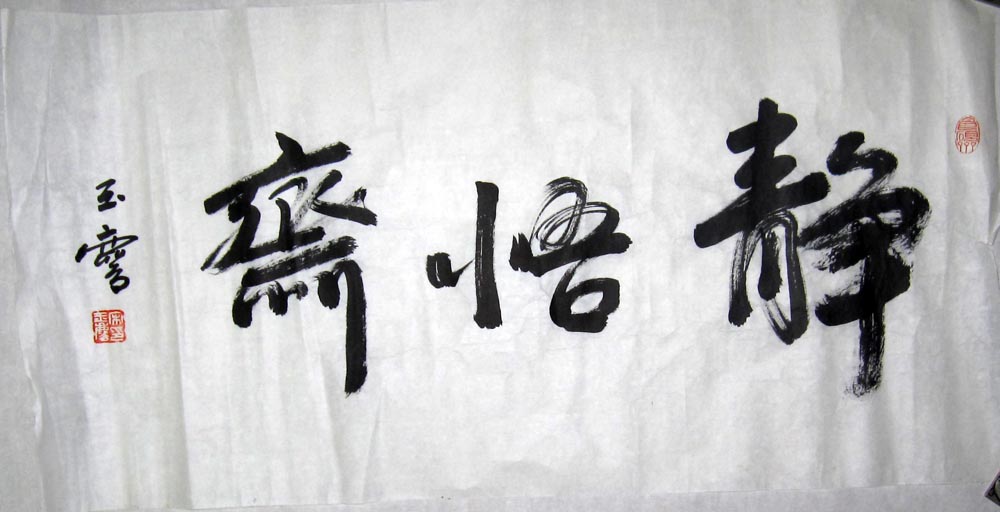 静悟齋
玉